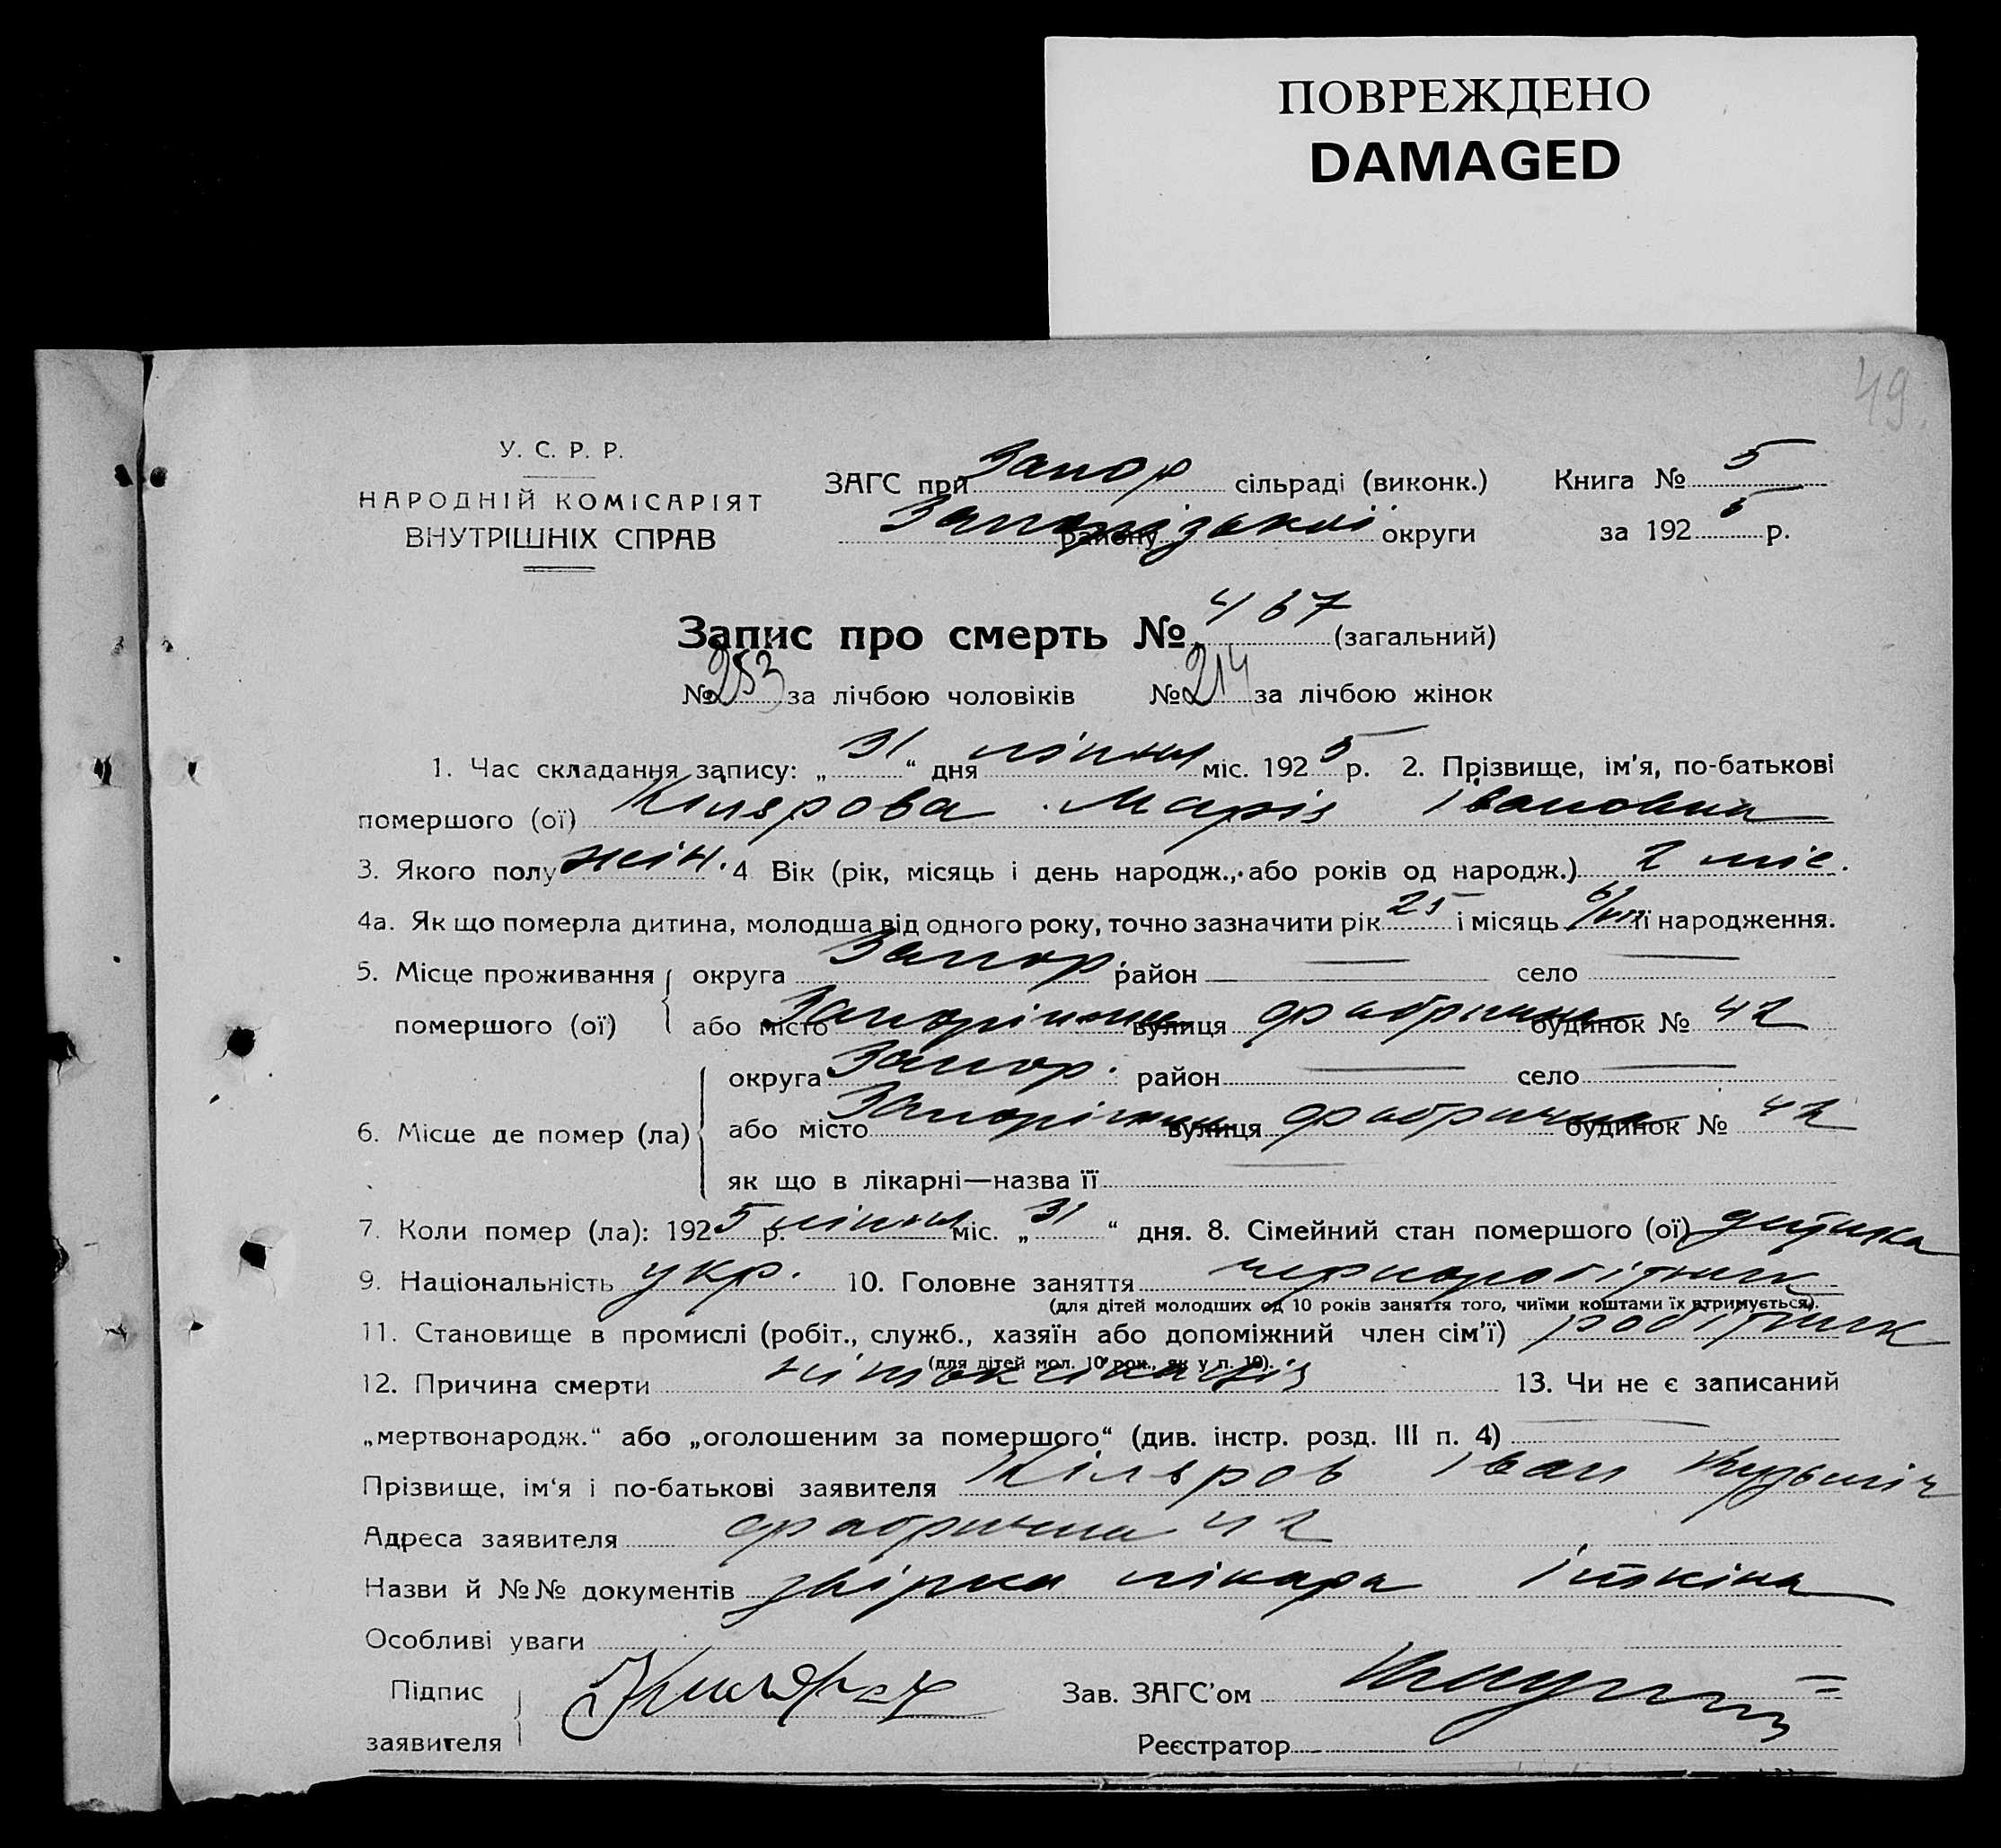 ПОВРЕЖДЕНО
DAMAGED
49.
У. С. Р. Р.
НАРОДНІЙ КОМІСАРІЯТ
ВНУТРІШНІХ СПРАВ
ЗАГС при Запор сільраді (виконк.)
району Запорізької округи
Книга № 5
за 1925 р.
Запис про смерть № 467 (загальний)
№ 253 за лічбою чоловіків № 214 за лічбою жінок
1. Час складання запису: „31“ дня липня міс. 1925 р. 2. Прізвище, ім’я, по-батькові
помершого (ої) Кілярова Марія Івановна
3. Якого полу жін. 4 Вік (рік, місяць і день народж., або років од народж.) 2 міс.
4а. Як що померла дитина, молодша від одного року, точно зазначити рік 25 і місяць її народження.
5. Місце проживання округа Запор. район — село —
помершого (ої) або місто Запоріжжя вулиця фабрична будинок № 42
округа Запор. район — село —
6. Місце де помер (ла) або місто Запоріжжя вулиця фабрична будинок № 42
як що в лікарні—назва її —
7. Коли помер (ла): 1925 р. липня міс. „31“ дня. 8. Сімейний стан помершого (ої) дитина
9. Національність укр. 10. Головне заняття чорноробітник
(для дітей молодших од 10 років заняття того, чиїми коштами їх втримується).
11. Становище в промислі (робіт., служб., хазяїн або допоміжний член сім’ї) робітник
(для дітей мол. 10 рок., як у п. 10).
12. Причина смерти інтоксікація 13. Чи не є записаний
„мертвонародж.“ або „оголошеним за помершого“ (див. інстр. розд. III п. 4) —
Прізвище, ім‘я і по-батькові заявителя Кіляров Іван Кузьміч
Адреса заявителя фабрична 42
Назви й №№ документів лікаря Іткіна
Особливі уваги
Підпис
заявителя
Зав. ЗАГС’ом
Реєстратор